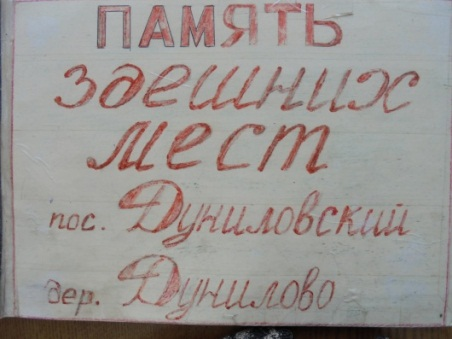 ПАМЯТЬ
здешних
мест
пос. Дуниловский
дер. Дунилово